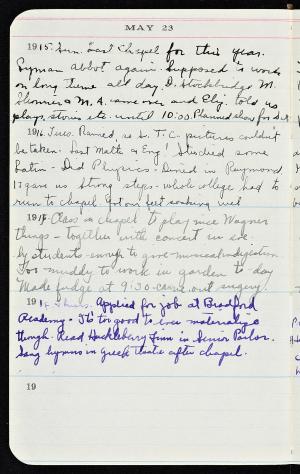 MAY 23
1915. Sun. Last Chapel for this year.
Lyman Abbot again. Supposed to work
on long theme all day. D. Stockbridge, M.
& M. A. came over and Ely. told us
plays, stories etc. until 10:00. Planned show for
1916. Tues. Rained, so S. T. C. pictures couldn't
be taken. Last Math & Eng! Studied some
Latin - Did Physics. Dined in Raymond
17 gave us Strong steps. whole college had to
run to chapel. Got our feet soaking wet
1917 Class in chapel to play nice Wagner
things - together with concert in eve.
by students enough to give musical indigestion
Too muddy to work in garden to-day
Made fudge at 9:30 - came out sugary.
1918 Thurs. Applied for job at Bradford
Academy - It's too good to ever materialize
though. Read Huckleberry Finn in Senior Parlor.
Sang hymns in Greek theatre after chapel.
19